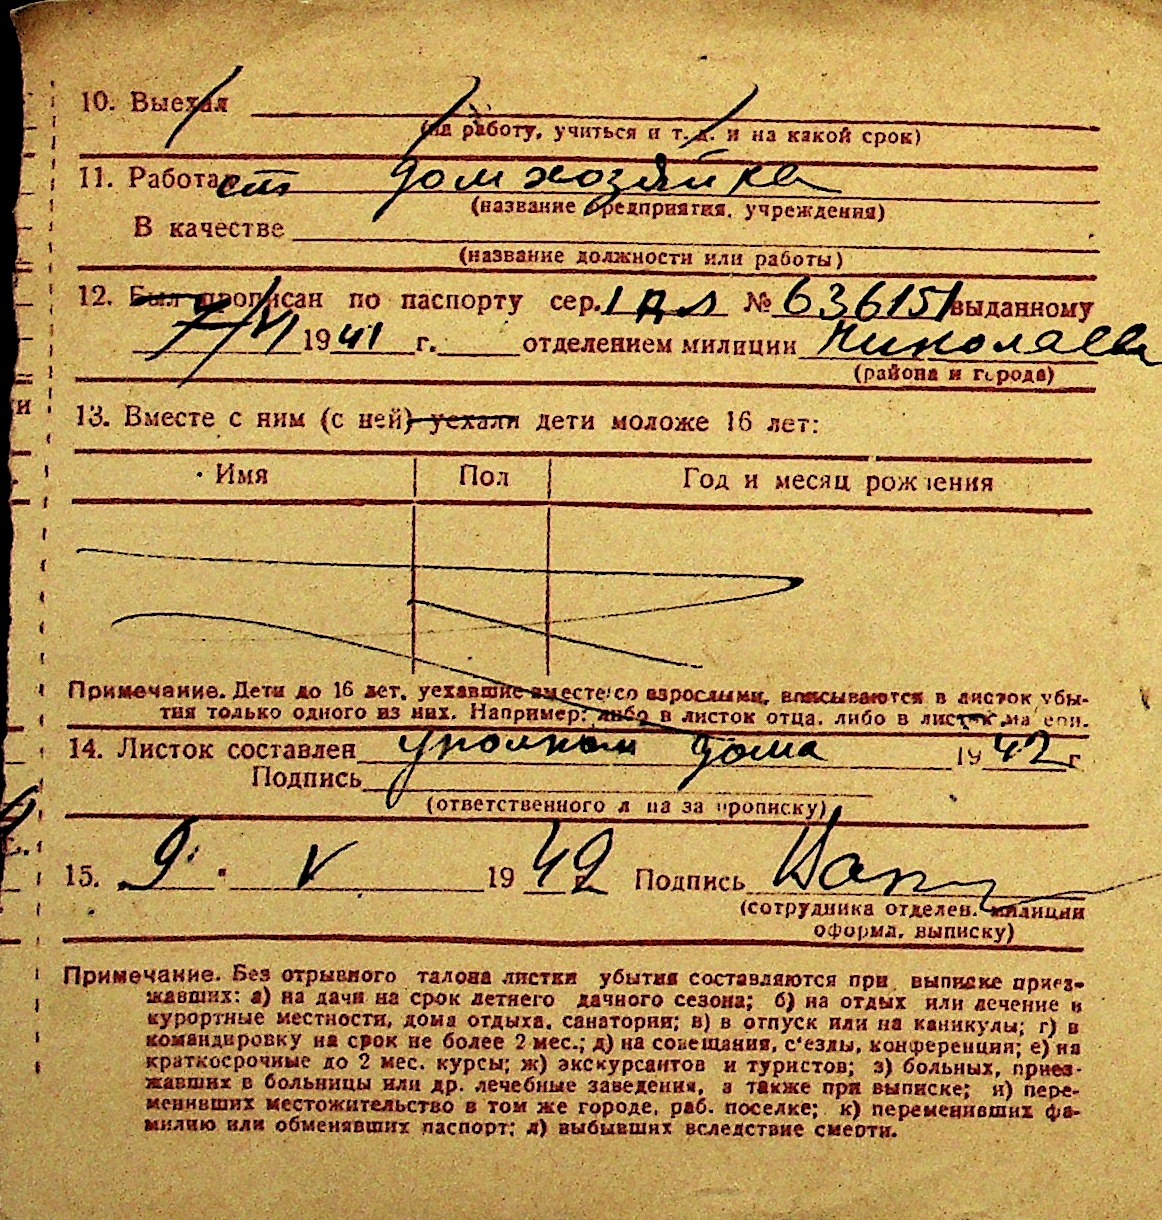 10. Выехал
(на работу, учиться и т. д. и на какой срок)
11. Работает домхозяйка
(название предприятия, учреждения)
В качестве
(название должности или работы)
12. Был прописан по паспорту сер. I дл № 636151 выданному
7/VI 1941 г. отделением милиции Николаев
(района и города)
13. Вместе с ним (с ней) уехали дети моложе 16 лет:
Имя Пол Год и месяц рождения
Примечание. Дети до 16 лет, уехавшие вместе со взрослыми, вписываются в листок убы-
тия только одного из них. Например: либо в листок отца, либо в листок матери.
14. Листок составлен дома 1942 г
Подпись
(ответственного лица за прописку)
15. 9 " V 1942 г Подпись
(сотрудника отделен. милиции
оформл. выписку)
Примечание. Без отрывного талона листки убытия составляются при выписке приез-
жавших: а) на дачи на срок летнего дачного сезона; б) на отдых или лечение в
курортные местности, дома отдыха, санатории; в) в отпуск или на каникулы; г) в
командировку на срок не более 2 мес.; д) на совещания, с'езды, конференции; е) на
краткосрочные до 2 мес. курсы; ж) экскурсантов и туристов; з) больных, приез-
жавших в больницы или др. лечебные заведения, а также при выписке; и) пере-
менивших местожительство в том же городе, раб. поселке; к) переменивших фа-
милию или обменявших паспорт; л) выбывших вследствие смерти.